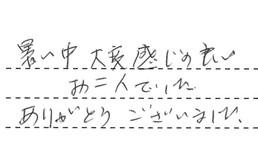 暑い中 大変感じの良い
お二人でした
ありがとう ございました。